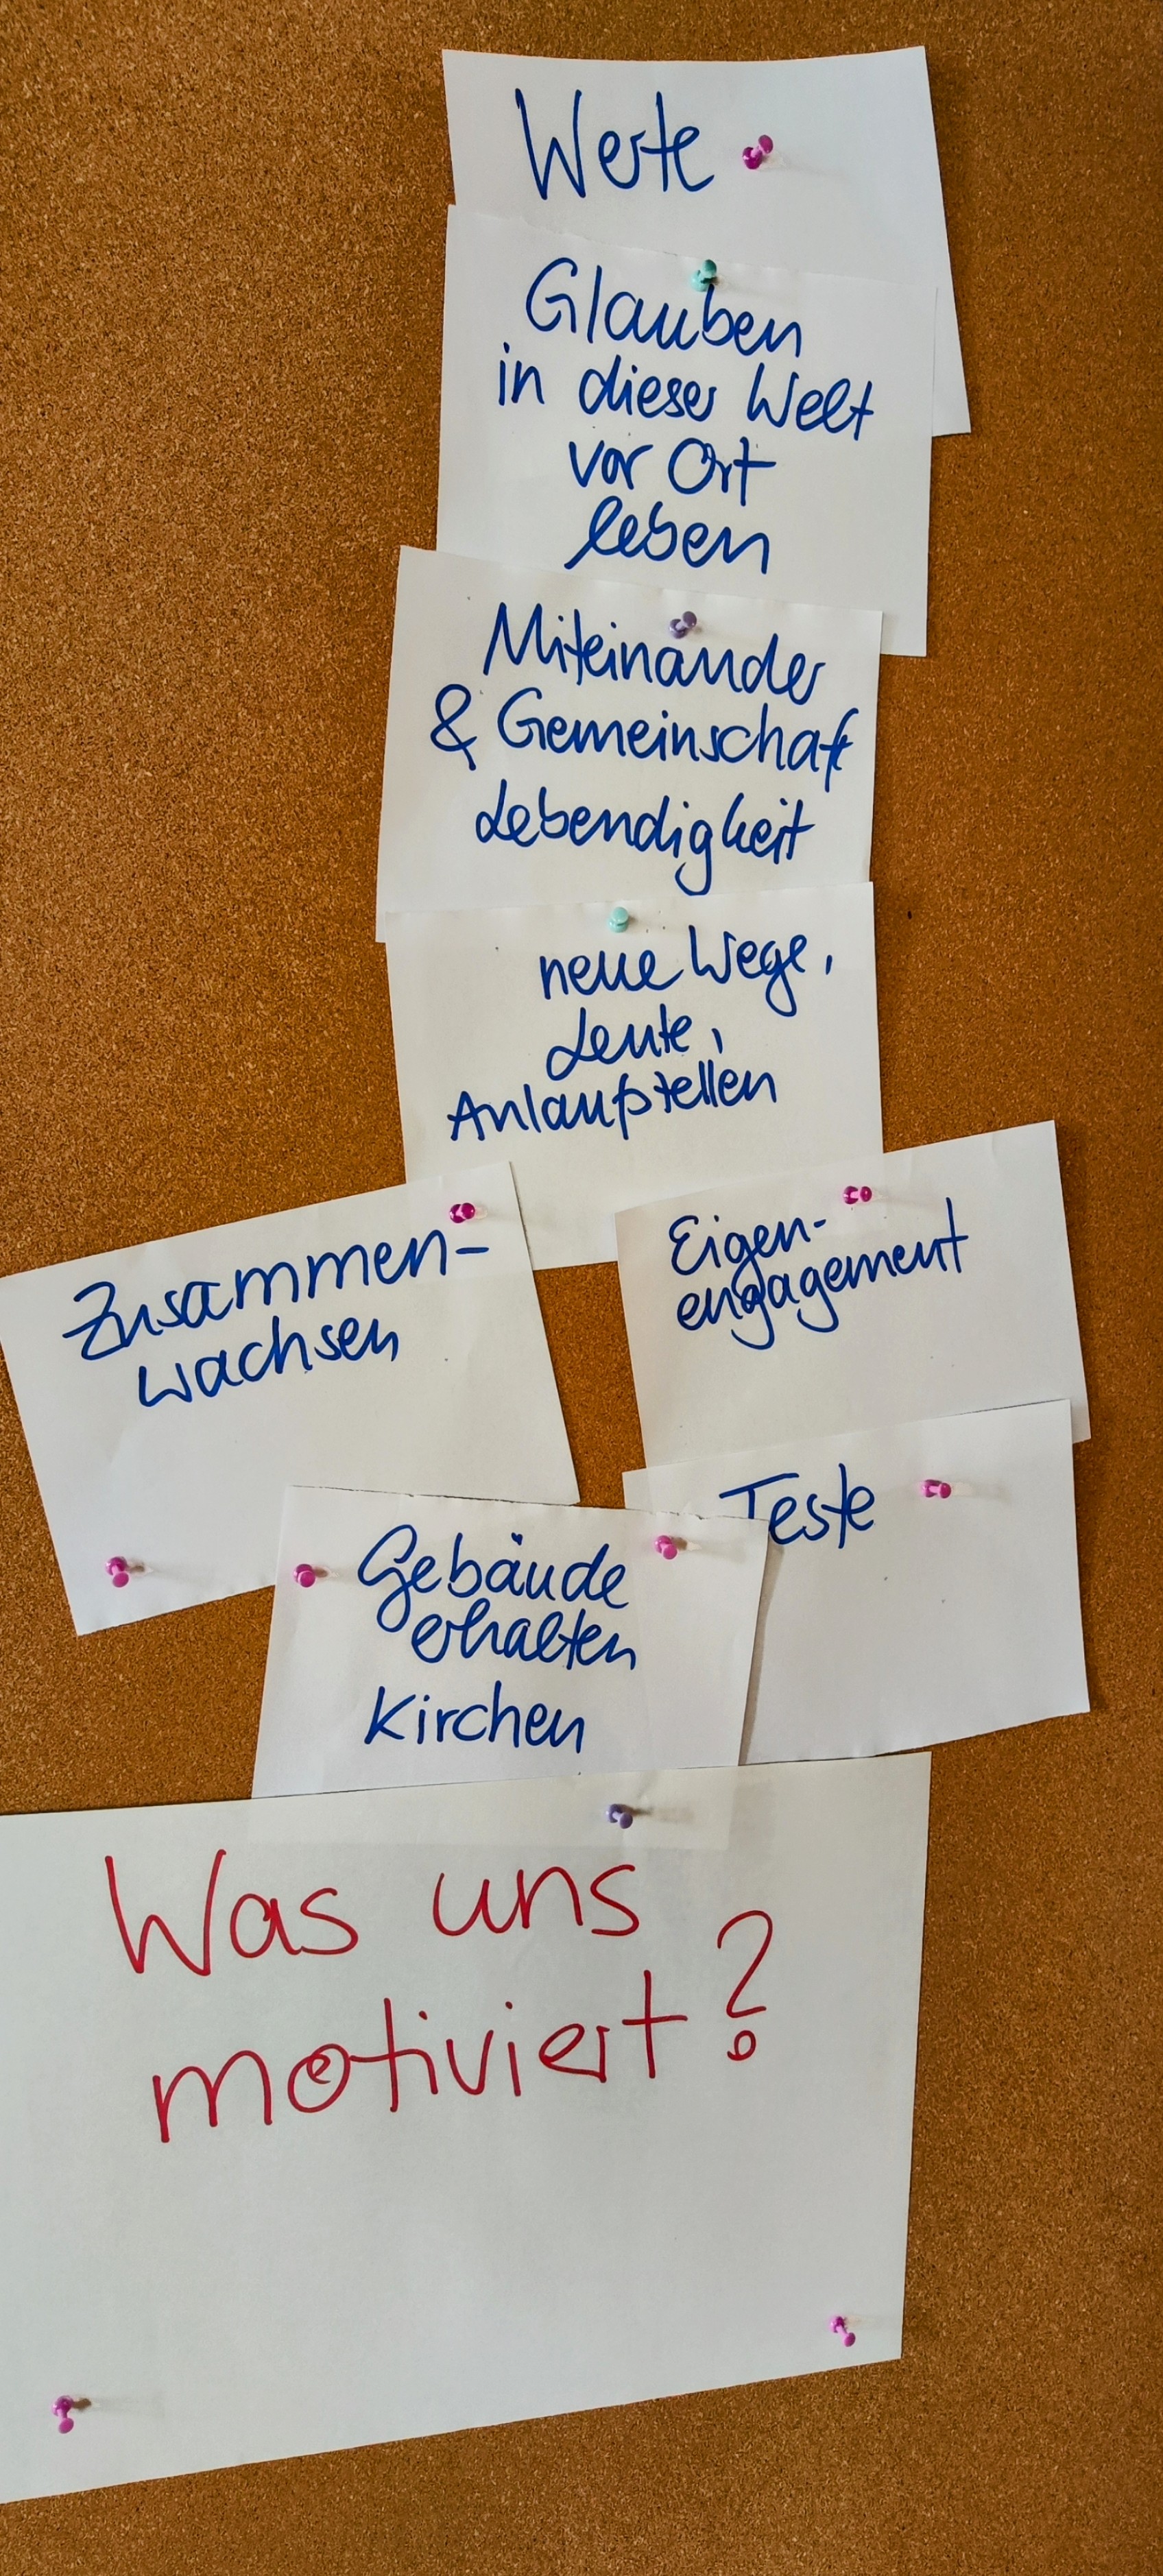 Werte
Glauben
in dieser Welt
vor Ort
leben
Miteinander
& Gemeinschaft
Lebendigkeit
neue Wege,
Leute,
Anlaufstellen
Zusammen-
wachsen
Eigen-
engagement
Teste
Gebäude
erhalten
Kirchen
Was uns
motiviert?